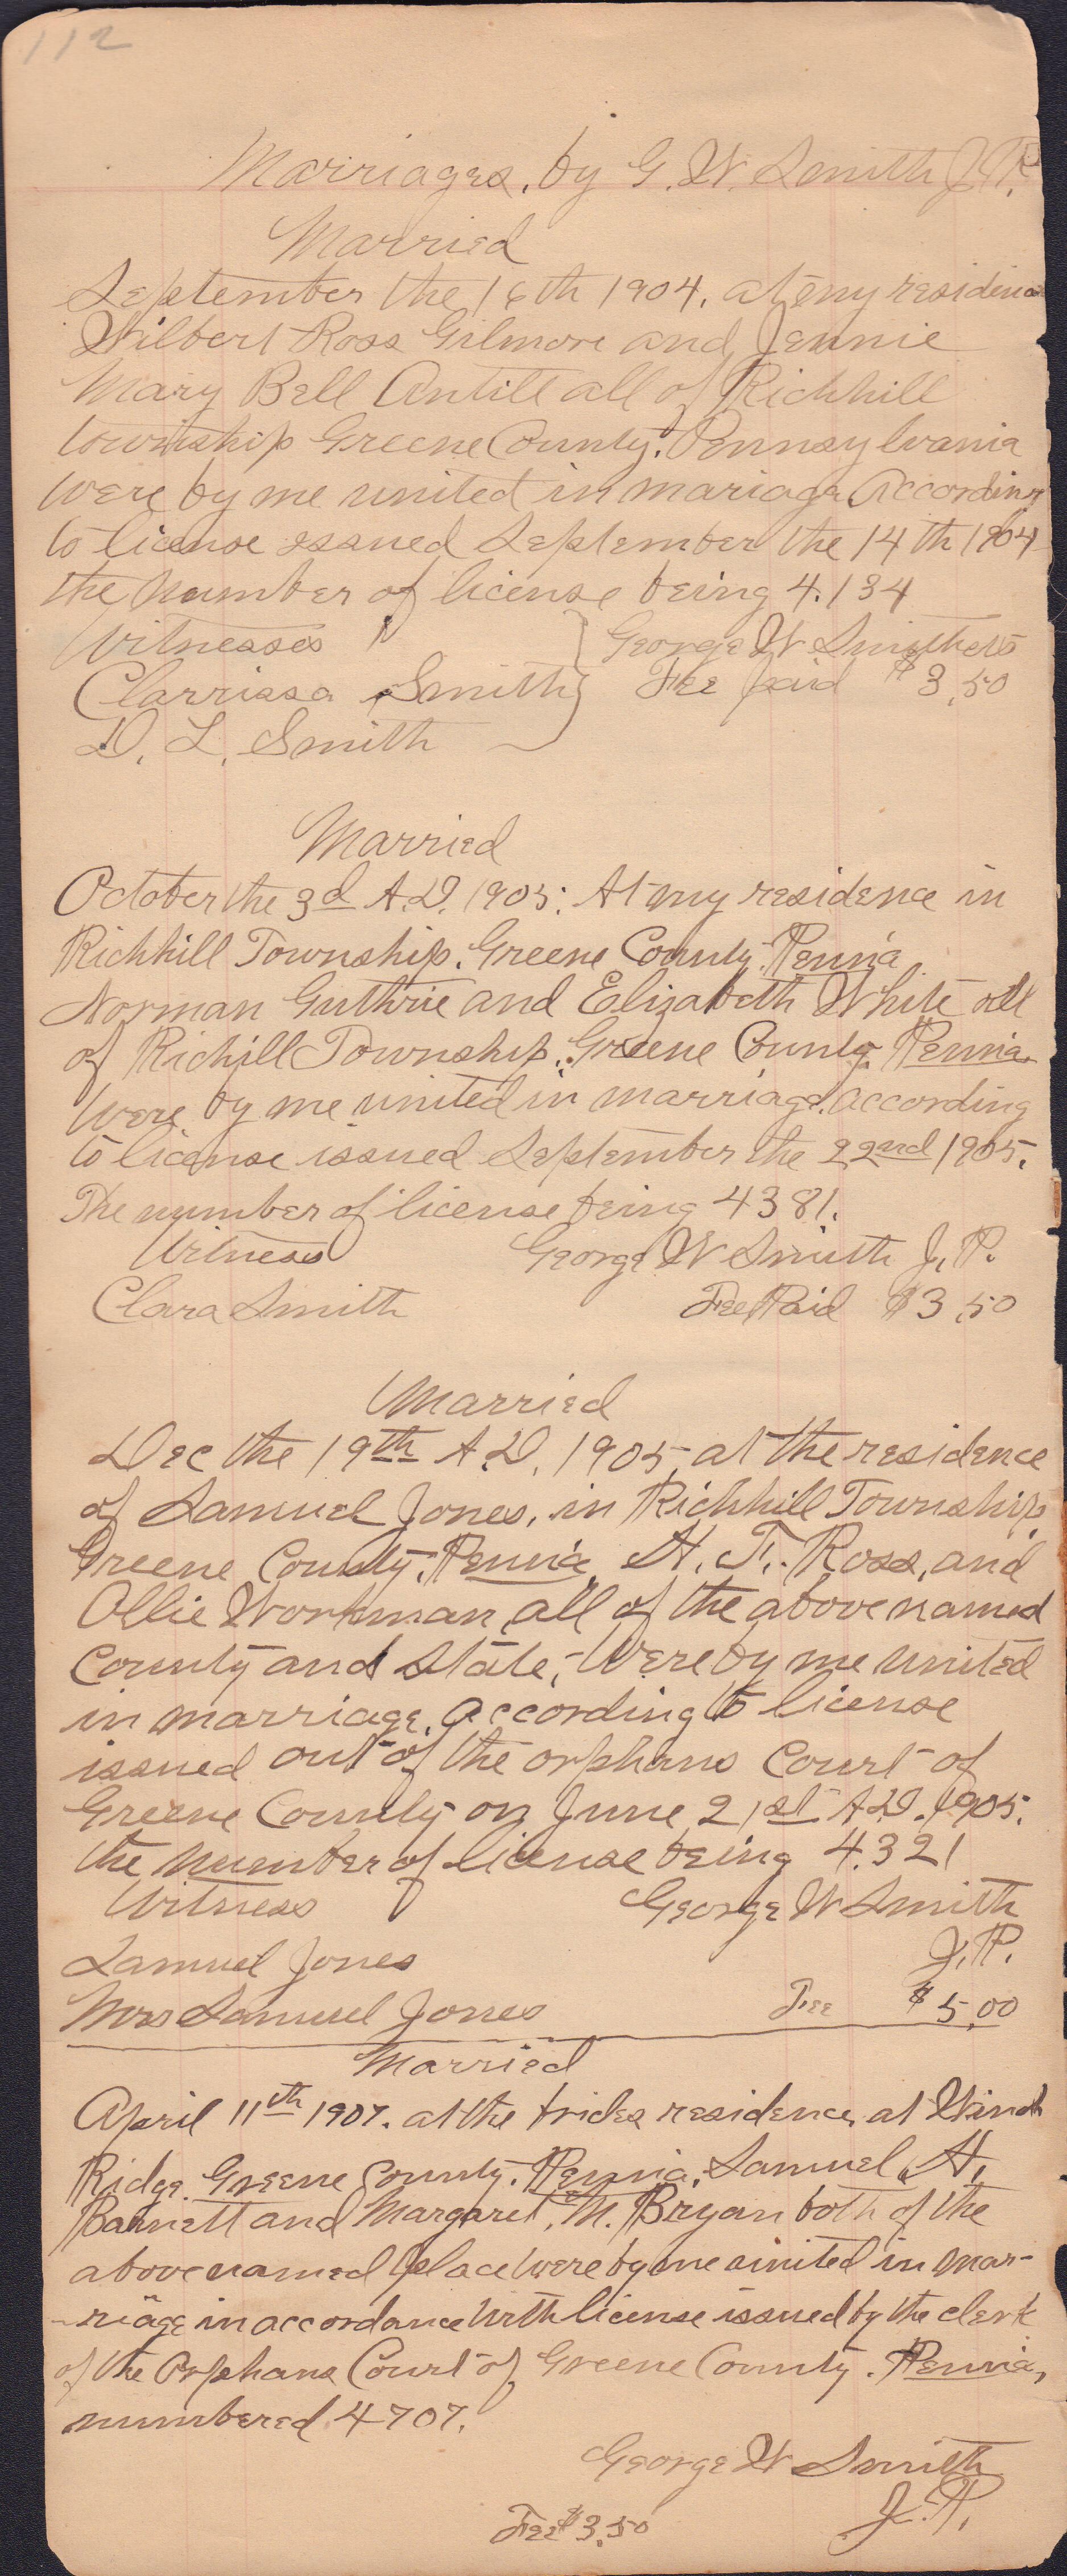 112
Marriages, by G. W. Smith J.P.
Married
September the 16th 1904. at my residence
Wilbert Ross Gilmore and Jennie
Mary Bell Antill all of Richhill
township Greene County. Pennsylvania
were by me united in mariage According
to license issued September the 14th 1904
the number of license being 4.134
Witnesses George W Smith
Clarrissa Smith Fee paid $3.50
D. L. Smith
Married
October the 3d A.D. 1905. At my residence in
Richhill Township. Greene County. Penn'a
Norman Guthrie and Elizabeth White all
of Richill Township. Greene County. Penn'a.
Were by me united in marriage. according
to license issued September the 22nd 1905.
The number of license being 4381.
Witness George W Smith J. P.
Clara Smith Fee Paid $3.50
Married
Dec the 19th A.D. 1905. at the residence
of Samuel Jones. in Richhill Township.
Greene County. Penn'a. H. F. Ross, and
Ollie Workman, all of the above named
County and State,- Were by me united
in marriage. according to license
issued out of the orphans Court of
Greene County on June 21st A.D. 1905.
the number of license being 4.321
Witness George W Smith
Samuel Jones J. P.
Mrs Samuel Jones Fee $5.00
Married
April 11th 1907. at the brides residence, at Wind
Ridge. Greene County. Penn'a. Samuel. H.
Barnett and Margaret. M. Bryan both of the
above named place were by me united in mar-
-riage in accordance with license issued by the clerk
of the Orphans Court of Greene County. Penn'a,
numbered 4707.
George W Smith
J. P.
Fee $3.50